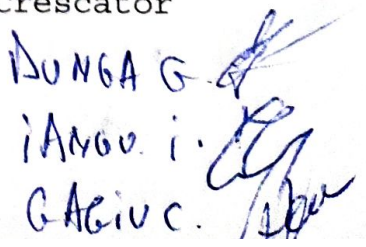 Crescator
DUNGA G.
IANGU. i.
GAGIU C.